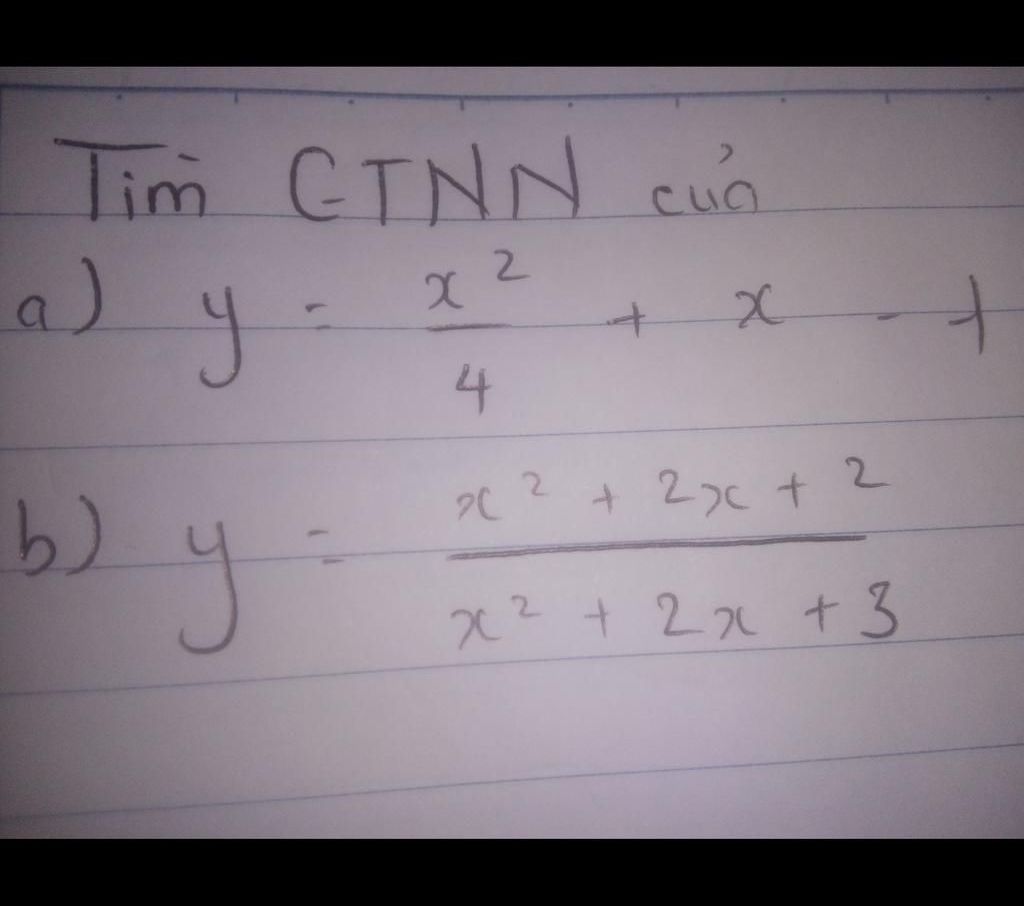 Tìm GTNN của
a) y = x²/4 + x - 1
b) y = (x² + 2x + 2)/(x² + 2x + 3)